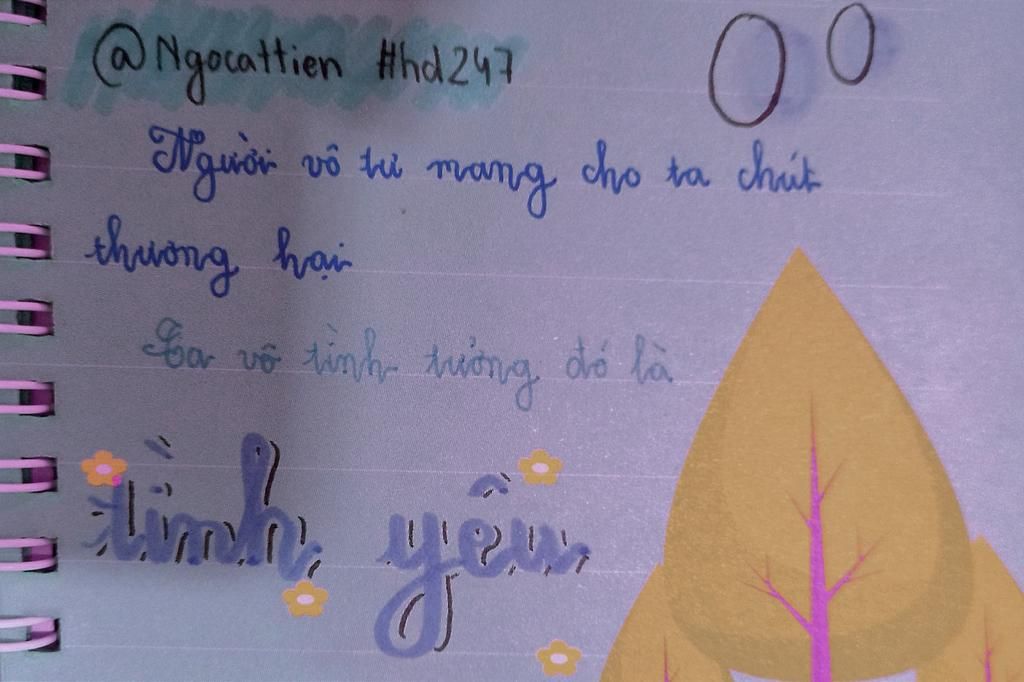 @Ngocattien #hd247
Người vô tư mang cho ta chút
thương hại
Ta vô tình tưởng đó là
tình yêu